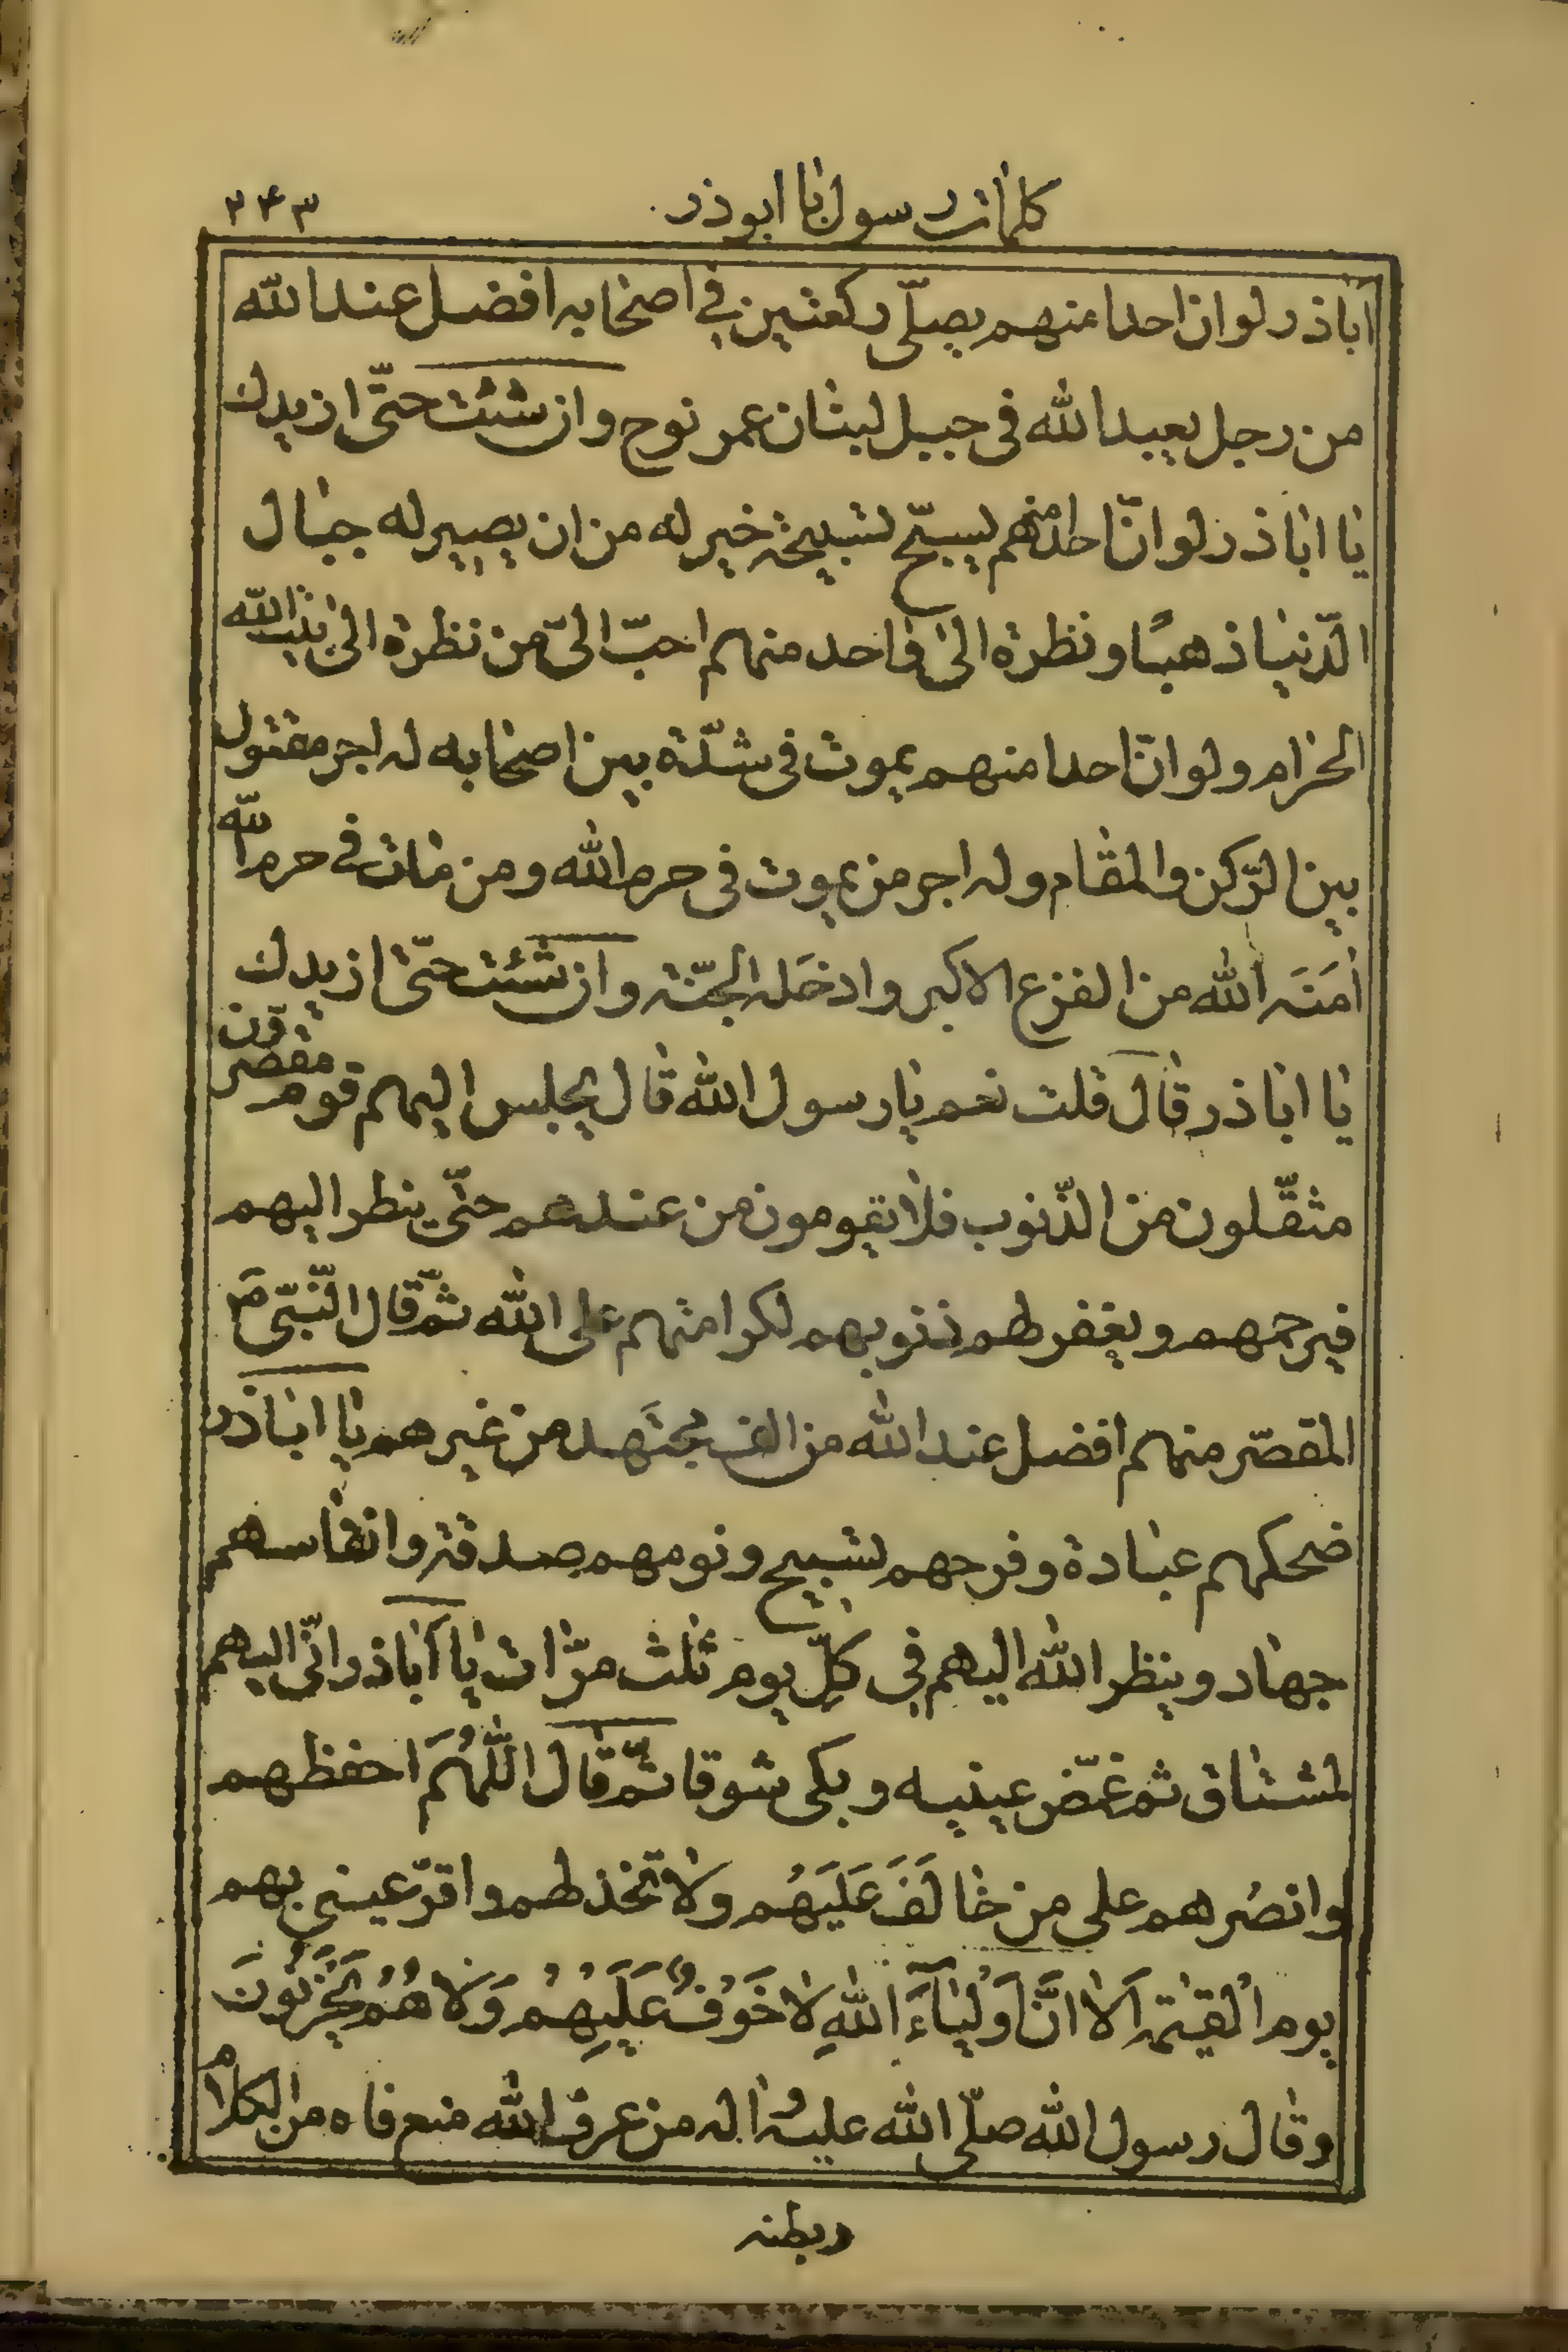 كلمات رسول با ابوذر ۳۴۳
اباذر لو ان احدا منهم يصلّى ركعتين فى اصحابه افضل عند الله
من رجل يعبد الله فى جبل لبنان عمر نوح وان شئت حتّى ازيدك
يا اباذر لو انّ احدا منهم ليسبّح تسبيحة خير له من ان يصير له جبال
الدّنيا ذهبًا و نظرة الى واحد منهم احبّ الىّ من نظرة الى بيت الله
الحرام ولو انّ احدا منهم يموت فى شدّة بين اصحابه له اجر مقتول
بين الرّكن والمقام وله اجر من يموت فى حرم الله ومن مات فى حرم الله
امَنَه الله من الفزع الاكبر وادخَله الجنّة وان شئت حتّى ازيدك
يا اباذر قال قلت نعم يا رسول الله قال يجلس اليهم قوم مقصّرون
مثقّلون من الذّنوب فلا يقومون من عندهم حتّى ينظر اليهم
فيرحمهم ويغفر لهم ذنوبهم لكرامتهم على الله ثمّ قال النّبىّ ص
المقصّر منهم افضل عند الله من الف مجتَهد من غيرهم يا اباذر
ضحكهم عبادة وفرحهم تسبيح ونومهم صدقة وانفاسهم
جهاد وينظر الله اليهم فى كلّ يوم ثلث مرّات يا اباذر انّى اليهم
لمشتاق ثم غمّض عينيه وبكى شوقا ثمّ قال اللّهُمَّ احفظهم
وانصُرهم على من خالَفَ عَلَيهُم ولا تخذلهم واقرّ عينى بهم
يوم القيٰمة اَلا انَّ اَوْلِيٰآءَ اللهِ لا خَوْفٌ عَلَيْهِمْ وَلا هُمْ يَحْزَنُونَ
وقال رسول الله صلّى الله عليه واله من عرف الله منع فاه من الكلام
وبطنه